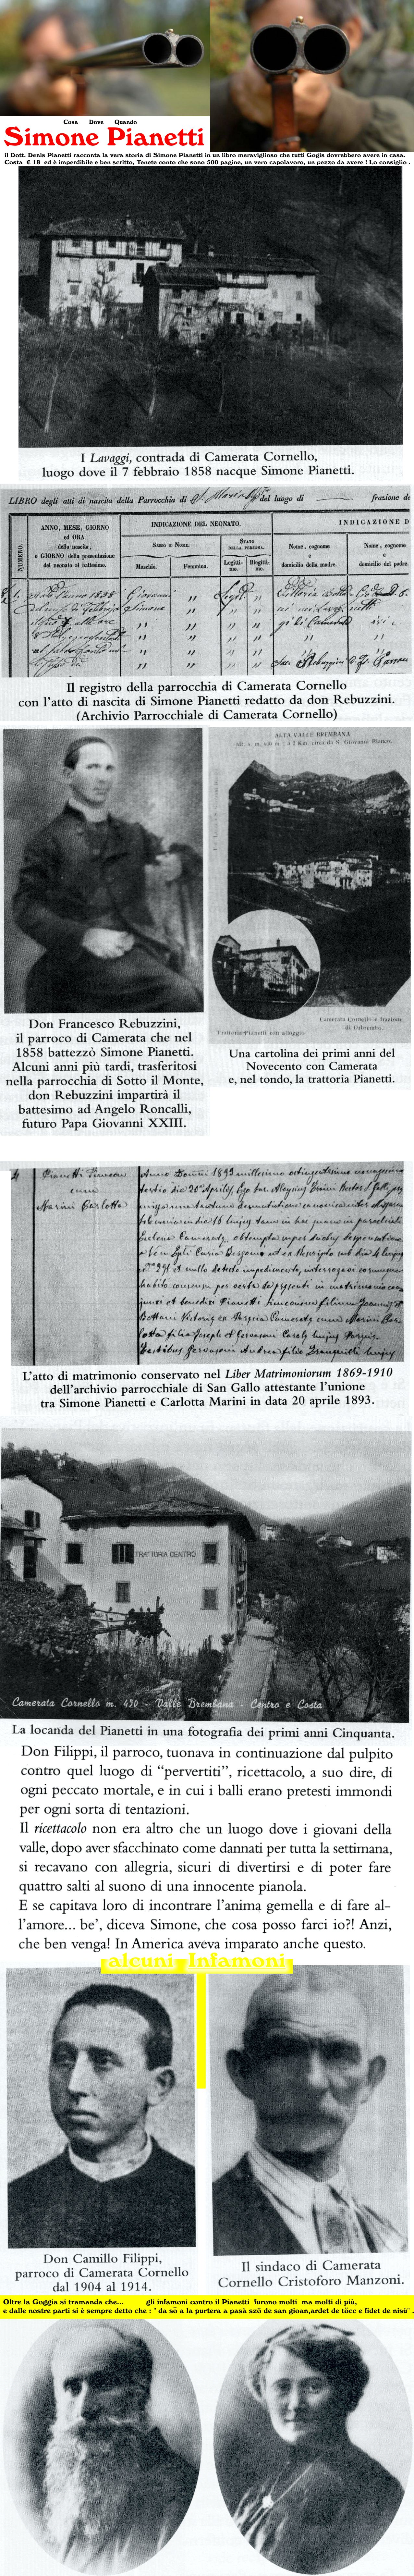 Cosa Dove Quando
Simone Pianetti
il Dott. Denis Pianetti racconta la vera storia di Simone Pianetti in un libro meraviglioso che tutti Gogis dovrebbero avere in casa.
Costa € 18 ed è imperdibile e ben scritto, Tenete conto che sono 500 pagine, un vero capolavoro, un pezzo da avere ! Lo consiglio .
I Lavaggi, contrada di Camerata Cornello,
luogo dove il 7 febbraio 1858 nacque Simone Pianetti.
LIBRO degli atti di nascita della Parrocchia di S. Maria del luogo di frazione de
NUMERO.
ANNO, MESE, GIORNO
ed ORA
della nascita,
e GIORNO della presentazione
del neonato al battesimo.
INDICAZIONE DEL NEONATO.
Sesso e Nome.
Maschio.
Femmina.
Stato
della persona.
Legitti-
mo.
Illegitti-
mo.
INDICAZIONE D
Nome, cognome
e
domicilio della madre.
Nome, cognome
e
domicilio del padre.
Giovanni
Simone
Il registro della parrocchia di Camerata Cornello
con l'atto di nascita di Simone Pianetti redatto da don Rebuzzini.
(Archivio Parrocchiale di Camerata Cornello)
ALTA VALLE BREMBANA
a 2 Km. circa da S. Giovanni Bianco.
Trattoria Pianetti con alloggio
Camerata Cornello e frazione
di Orbrembo
Don Francesco Rebuzzini,
il parroco di Camerata che nel
1858 battezzò Simone Pianetti.
Alcuni anni più tardi, trasferitosi
nella parrocchia di Sotto il Monte,
don Rebuzzini impartirà il
battesimo ad Angelo Roncalli,
futuro Papa Giovanni XXIII.
Una cartolina dei primi anni del
Novecento con Camerata
e, nel tondo, la trattoria Pianetti.
Pianetti Simeon
cum
Marini Carlotta
Anno Domini 1893 millesimo octingentesimo nonagesimo
tertio die 20 Aprilis, Ego
L'atto di matrimonio conservato nel Liber Matrimoniorum 1869-1910
dell'archivio parrocchiale di San Gallo attestante l'unione
tra Simone Pianetti e Carlotta Marini in data 20 aprile 1893.
TRATTORIA CENTRO
Camerata Cornello m. 450 - Valle Brembana - Centro e Costa
La locanda del Pianetti in una fotografia dei primi anni Cinquanta.
Don Filippi, il parroco, tuonava in continuazione dal pulpito
contro quel luogo di “pervertiti”, ricettacolo, a suo dire, di
ogni peccato mortale, e in cui i balli erano pretesti immondi
per ogni sorta di tentazioni.
Il ricettacolo non era altro che un luogo dove i giovani della
valle, dopo aver sfacchinato come dannati per tutta la settimana,
si recavano con allegria, sicuri di divertirsi e di poter fare
quattro salti al suono di una innocente pianola.
E se capitava loro di incontrare l'anima gemella e di fare al-
l'amore... be', diceva Simone, che cosa posso farci io?! Anzi,
che ben venga! In America aveva imparato anche questo.
alcuni Infamoni
Don Camillo Filippi,
parroco di Camerata Cornello
dal 1904 al 1914.
Il sindaco di Camerata
Cornello Cristoforo Manzoni.
Oltre la Goggia si tramanda che... gli infamoni contro il Pianetti furono molti ma molti di più,
e dalle nostre parti si è sempre detto che : " da sö a la purtera a pasà szö de san gioan,ardet de töcc e fidet de nisü" .